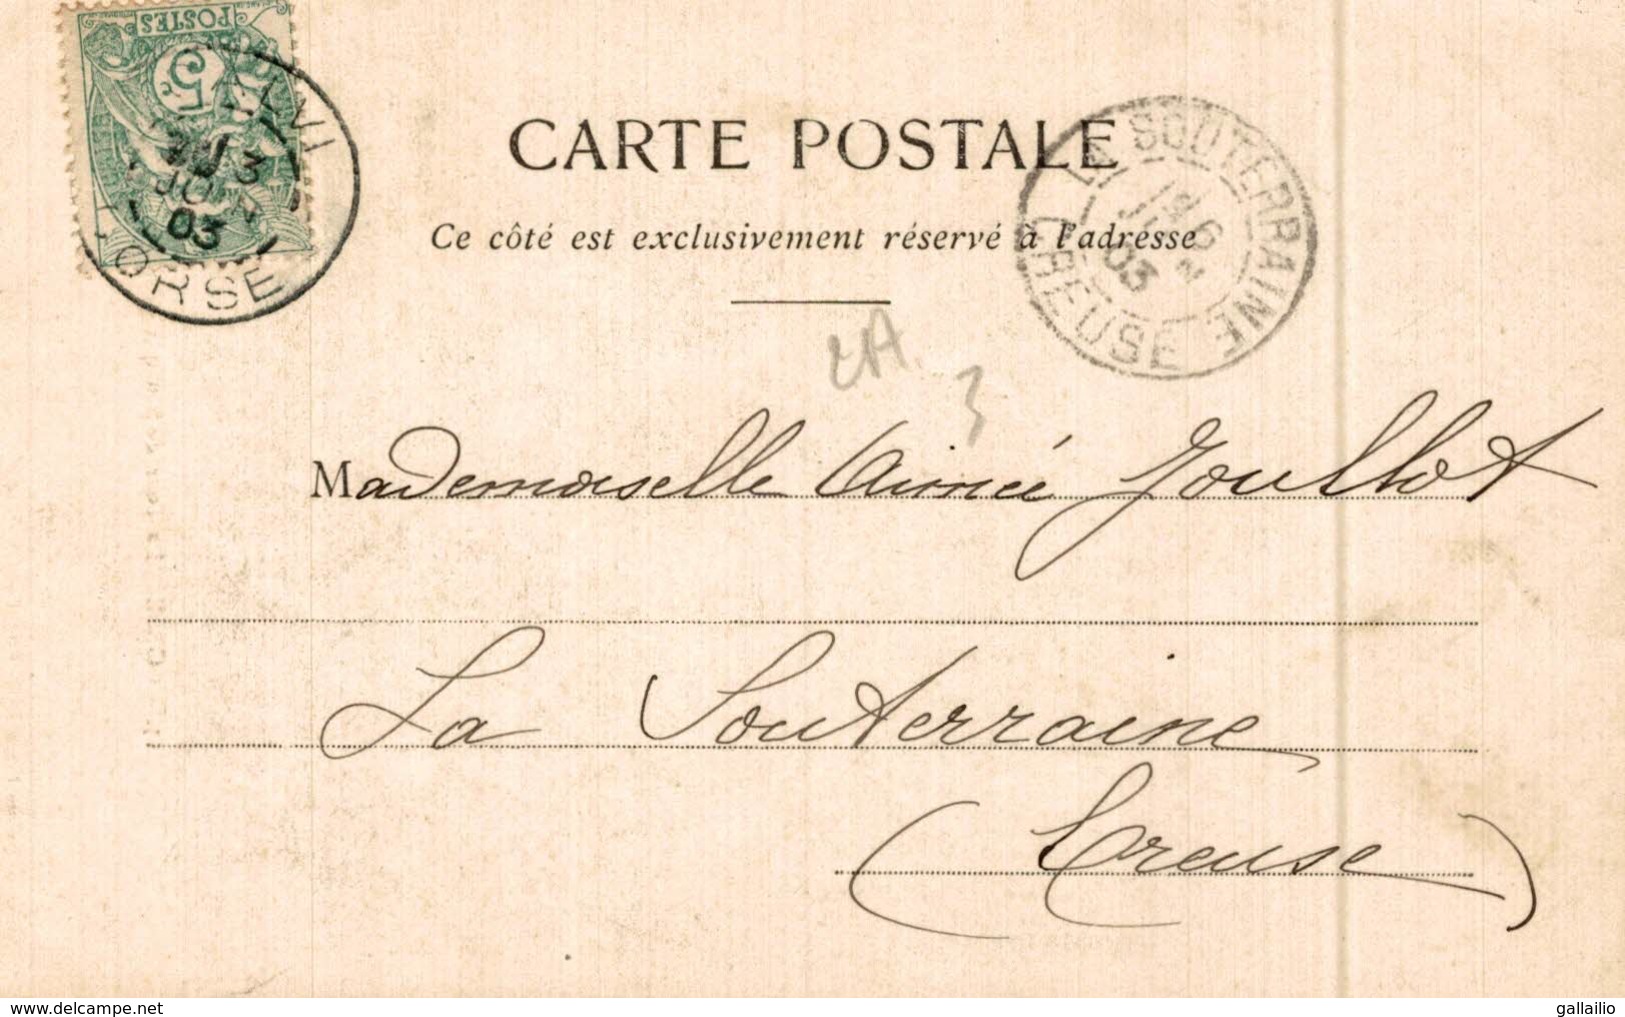 POSTES
5c
LVI
3
JUIN
03
CORSE
CARTE POSTALE
Ce côté est exclusivement réservé à l'adresse
LA SOUTERRAINE
6
JUIN
03
CREUSE
2A
3
Mademoiselle Aimée Joullot
La Souterraine
(Creuse)
www.delcampe.net
gallailio